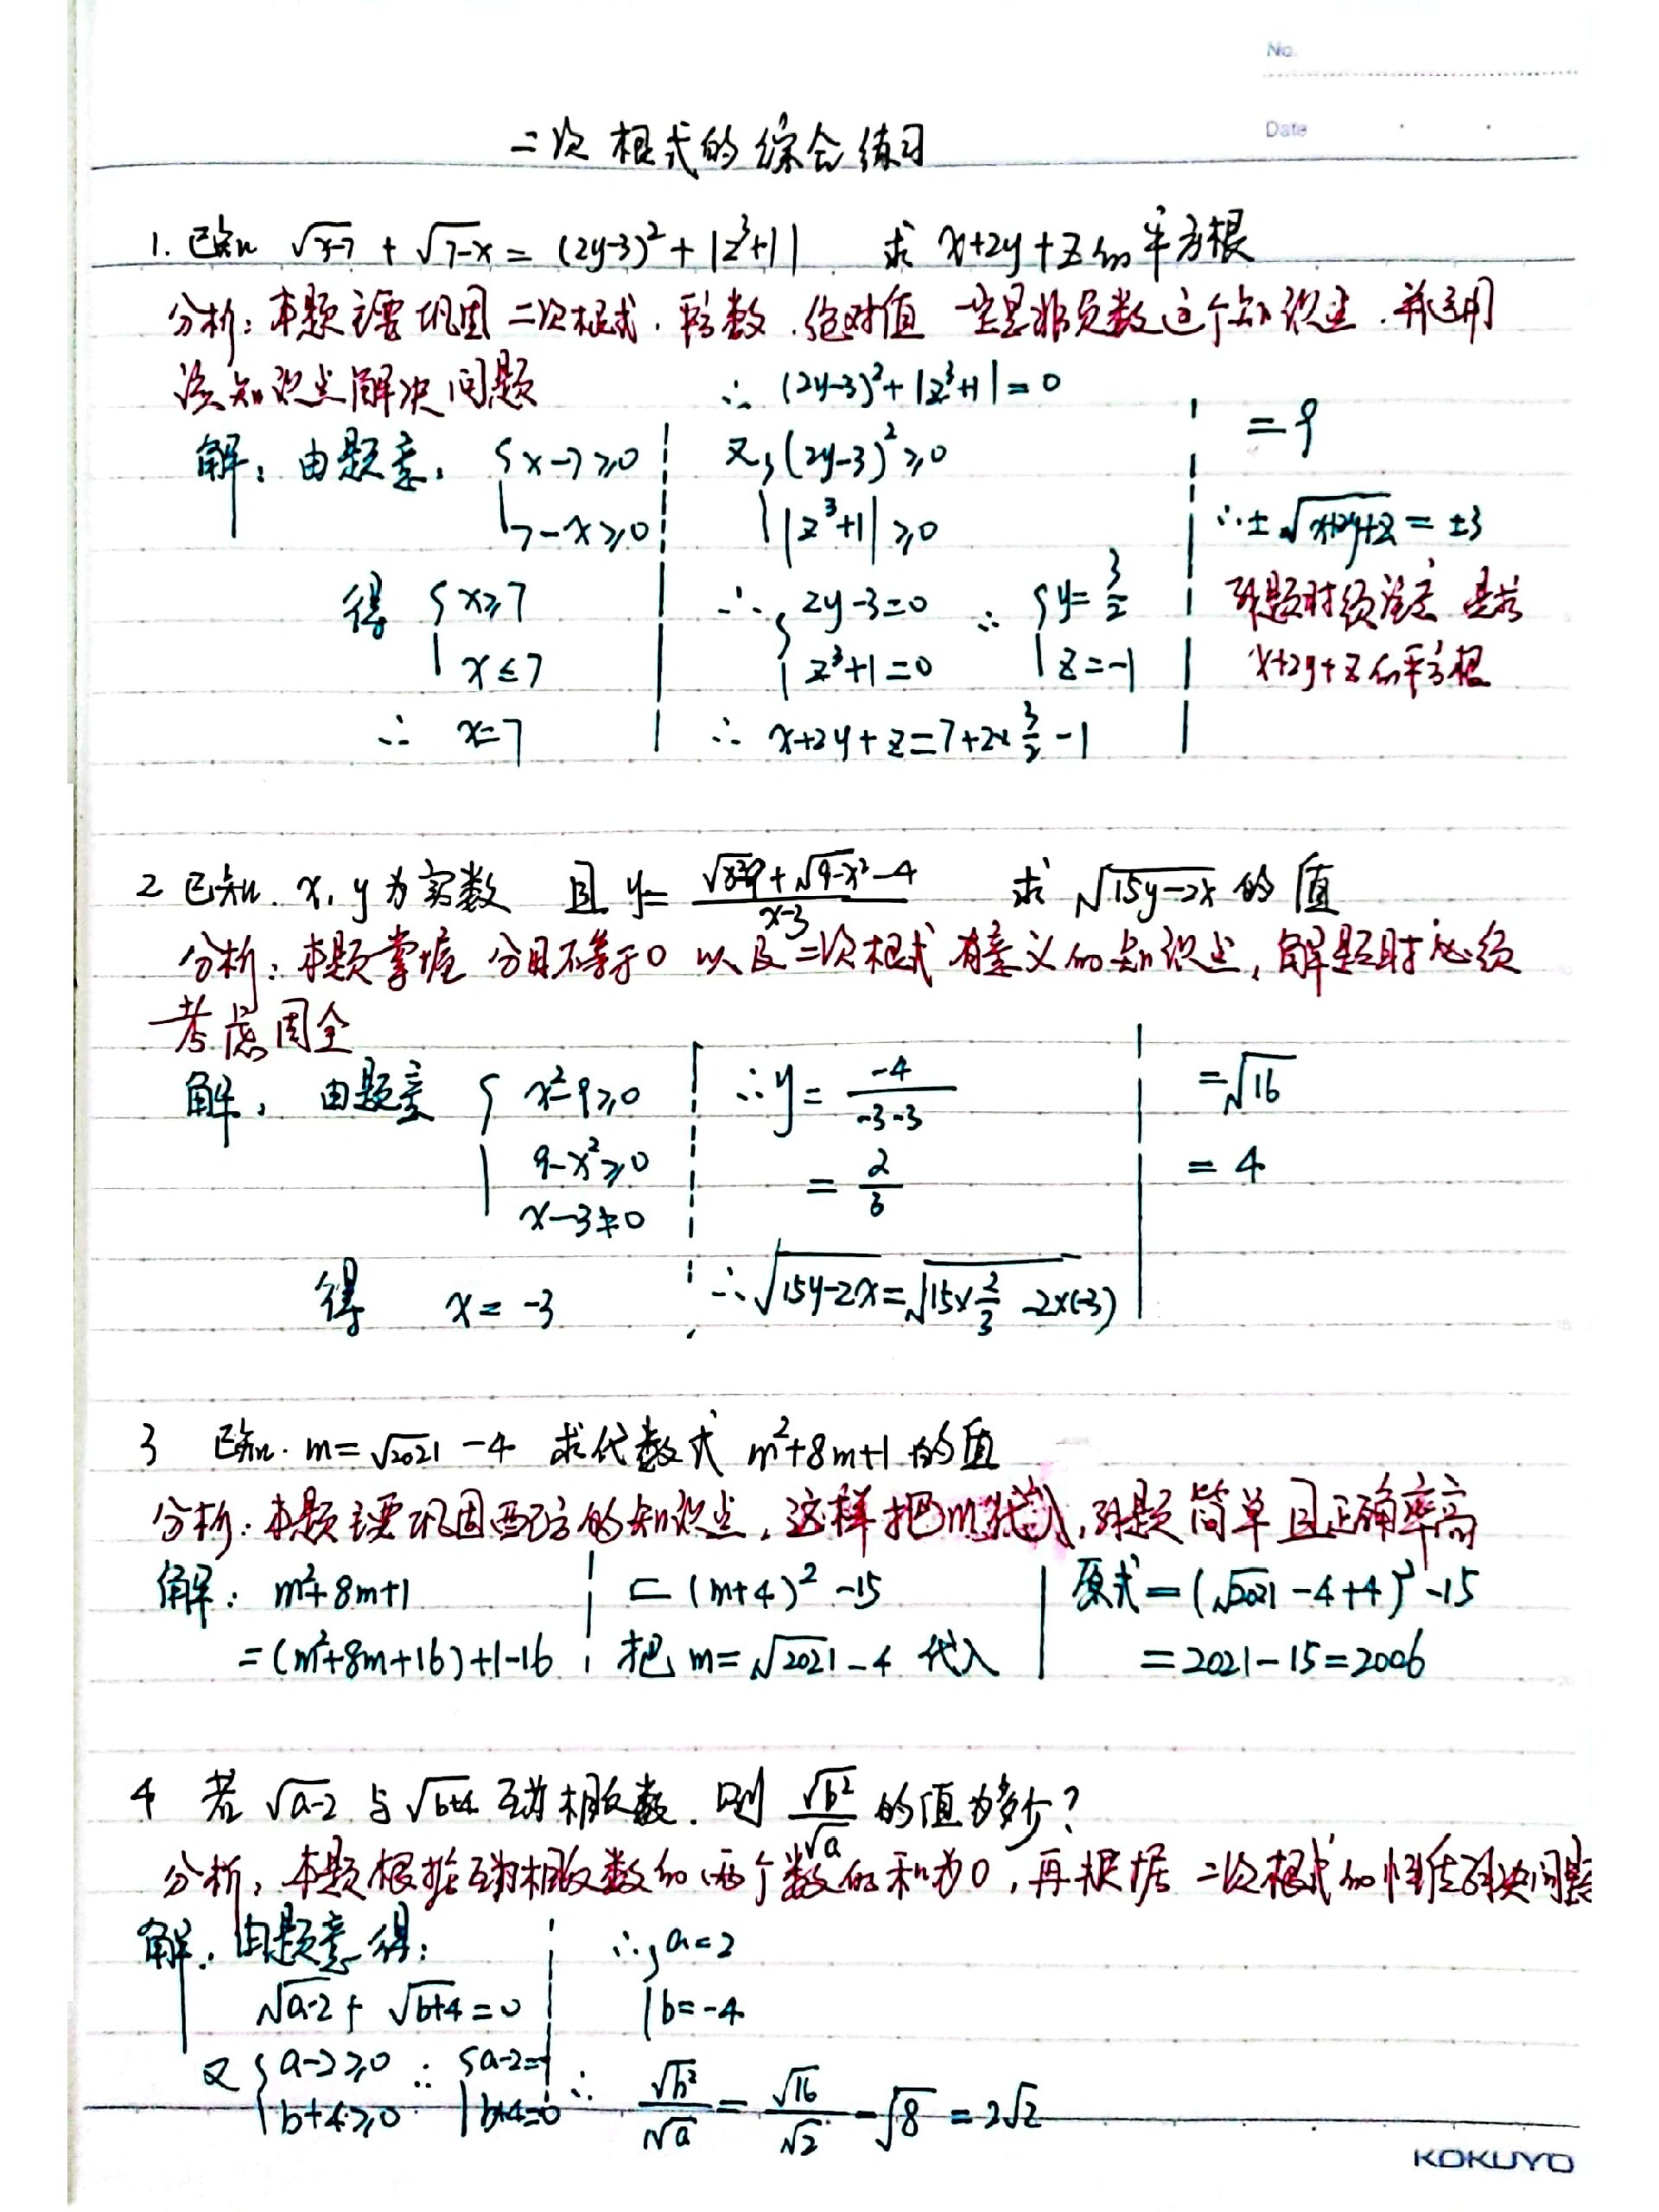 No.
Date
二次根式的综合练习
1. 已知 √(x-7) + √(7-x) = (2y-3)² + |z³+1| 求 x+2y+z的平方根
分析：本题主要巩固二次根式，数，绝对值一定是非负数这个知识点，并运用
该知识点解决问题
解：由题意，{x-7≥0
7-x≥0
得 {x≥7
x≤7
∴ x=7
∴ (2y-3)²+|z³+1|=0
又{(2y-3)²≥0
|z³+1|≥0
∴{2y-3=0 ∴ {y=3/2
z³+1=0 z=-1
∴ x+2y+z=7+2×3/2-1
=9
∴±√(x+2y+z) = ±3
题时须注意是求
x+2y+z的平方根
2 已知. x, y为实数 且 y= (√(x²-9)+√(9-x²)-4)/(x-3) 求 √(15y-2x) 的值
分析：本题掌握 分母不等于0 以及二次根式有意义的知识点，解题时必须
考虑周全
解，由题意 {x²-9≥0
9-x²≥0
x-3≠0
得 x=-3
∴y= -4/(-3-3)
= 2/3
∴√(15y-2x)=√(15×2/3-2×(-3))
=√16
= 4
3 已知. m=√2021-4 求代数式 m²+8m+1的值
分析：本题主要巩固配方的知识点，这样把m代入，题简单且正确率高
解：m²+8m+1
=(m²+8m+16)+1-16
=(m+4)²-15
把 m=√2021-4 代入
原式=(√2021-4+4)²-15
=2021-15=2006
4 若 √(a-2) 与 √(b+4) 互为相反数. 则 √b²/√a 的值为多少?
分析，本题根据互为相反数的两个数的和为0，再根据二次根式的性质解决问题
解，由题意得：
√(a-2)+√(b+4)=0
又{a-2≥0 ∴ {a-2=
b+4≥0 b+4=0
∴{a=2
b=-4
∴ √b²/√a = √16/√2 = √8 = 2√2
KOKUYO